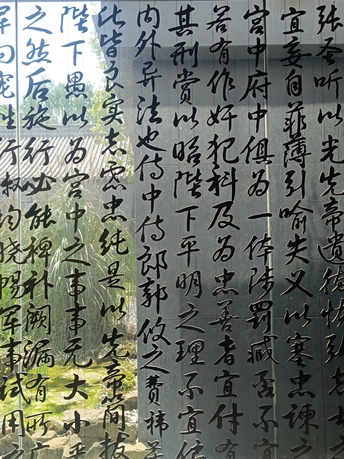 张圣听以光先帝遗德恢弘志士
宜妄自菲薄引喻失义以塞忠谏之
宫中府中俱为一体陟罚臧否不宜
若有作奸犯科及为忠善者宜付有
其刑赏以昭陛下平明之理不宜偏
内外异法也侍中侍郎郭攸之费祎
此皆良实志虑忠纯是以先帝简拔
陛下愚以为宫中之事事无大小
之然后施行必能裨补阙漏有所广
军向宠性行淑均晓畅军事试用